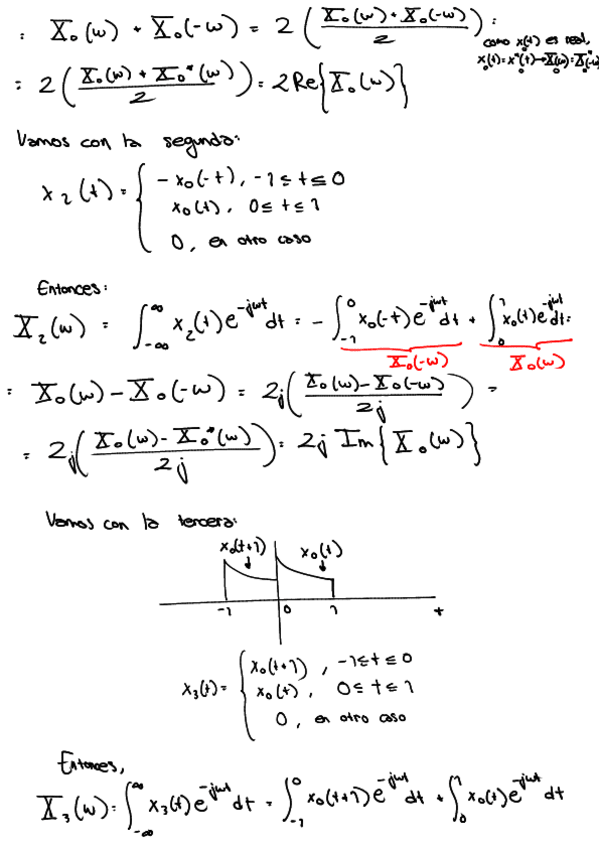 : X₀(ω) + X₀(-ω) = 2 ( (X₀(ω) + X₀(-ω)) / 2 ) :
como x₀(t) es real,
x₀(t) = x₀*(t) → X₀(ω) = X₀*(-ω)
= 2 ( (X₀(ω) + X₀*(ω)) / 2 ) = 2Re{X₀(ω)}
Vamos con la segunda:
x₂(t) = { -x₀(-t), -1 ≤ t ≤ 0
x₀(t), 0 ≤ t ≤ 1
0, en otro caso
Entonces:
X₂(ω) = ∫_{-∞}^{∞} x₂(t) e^{-jωt} dt = - ∫_{-1}^{0} x₀(-t) e^{-jωt} dt + ∫_{0}^{1} x₀(t) e^{-jωt} dt =
X₀(-ω) X₀(ω)
: X₀(ω) - X₀(-ω) = 2j ( (X₀(ω) - X₀(-ω)) / 2j ) =
= 2j ( (X₀(ω) - X₀*(ω)) / 2j ) = 2j Im{X₀(ω)}
Vamos con la tercera:
x₀(t+1) x₀(t)
-1 0 1 t
x₃(t) = { x₀(t+1), -1 ≤ t ≤ 0
x₀(t), 0 ≤ t ≤ 1
0, en otro caso
Entonces,
X₃(ω) = ∫_{-∞}^{∞} x₃(t) e^{-jωt} dt = ∫_{-1}^{0} x₀(t+1) e^{-jωt} dt + ∫_{0}^{1} x₀(t) e^{-jωt} dt